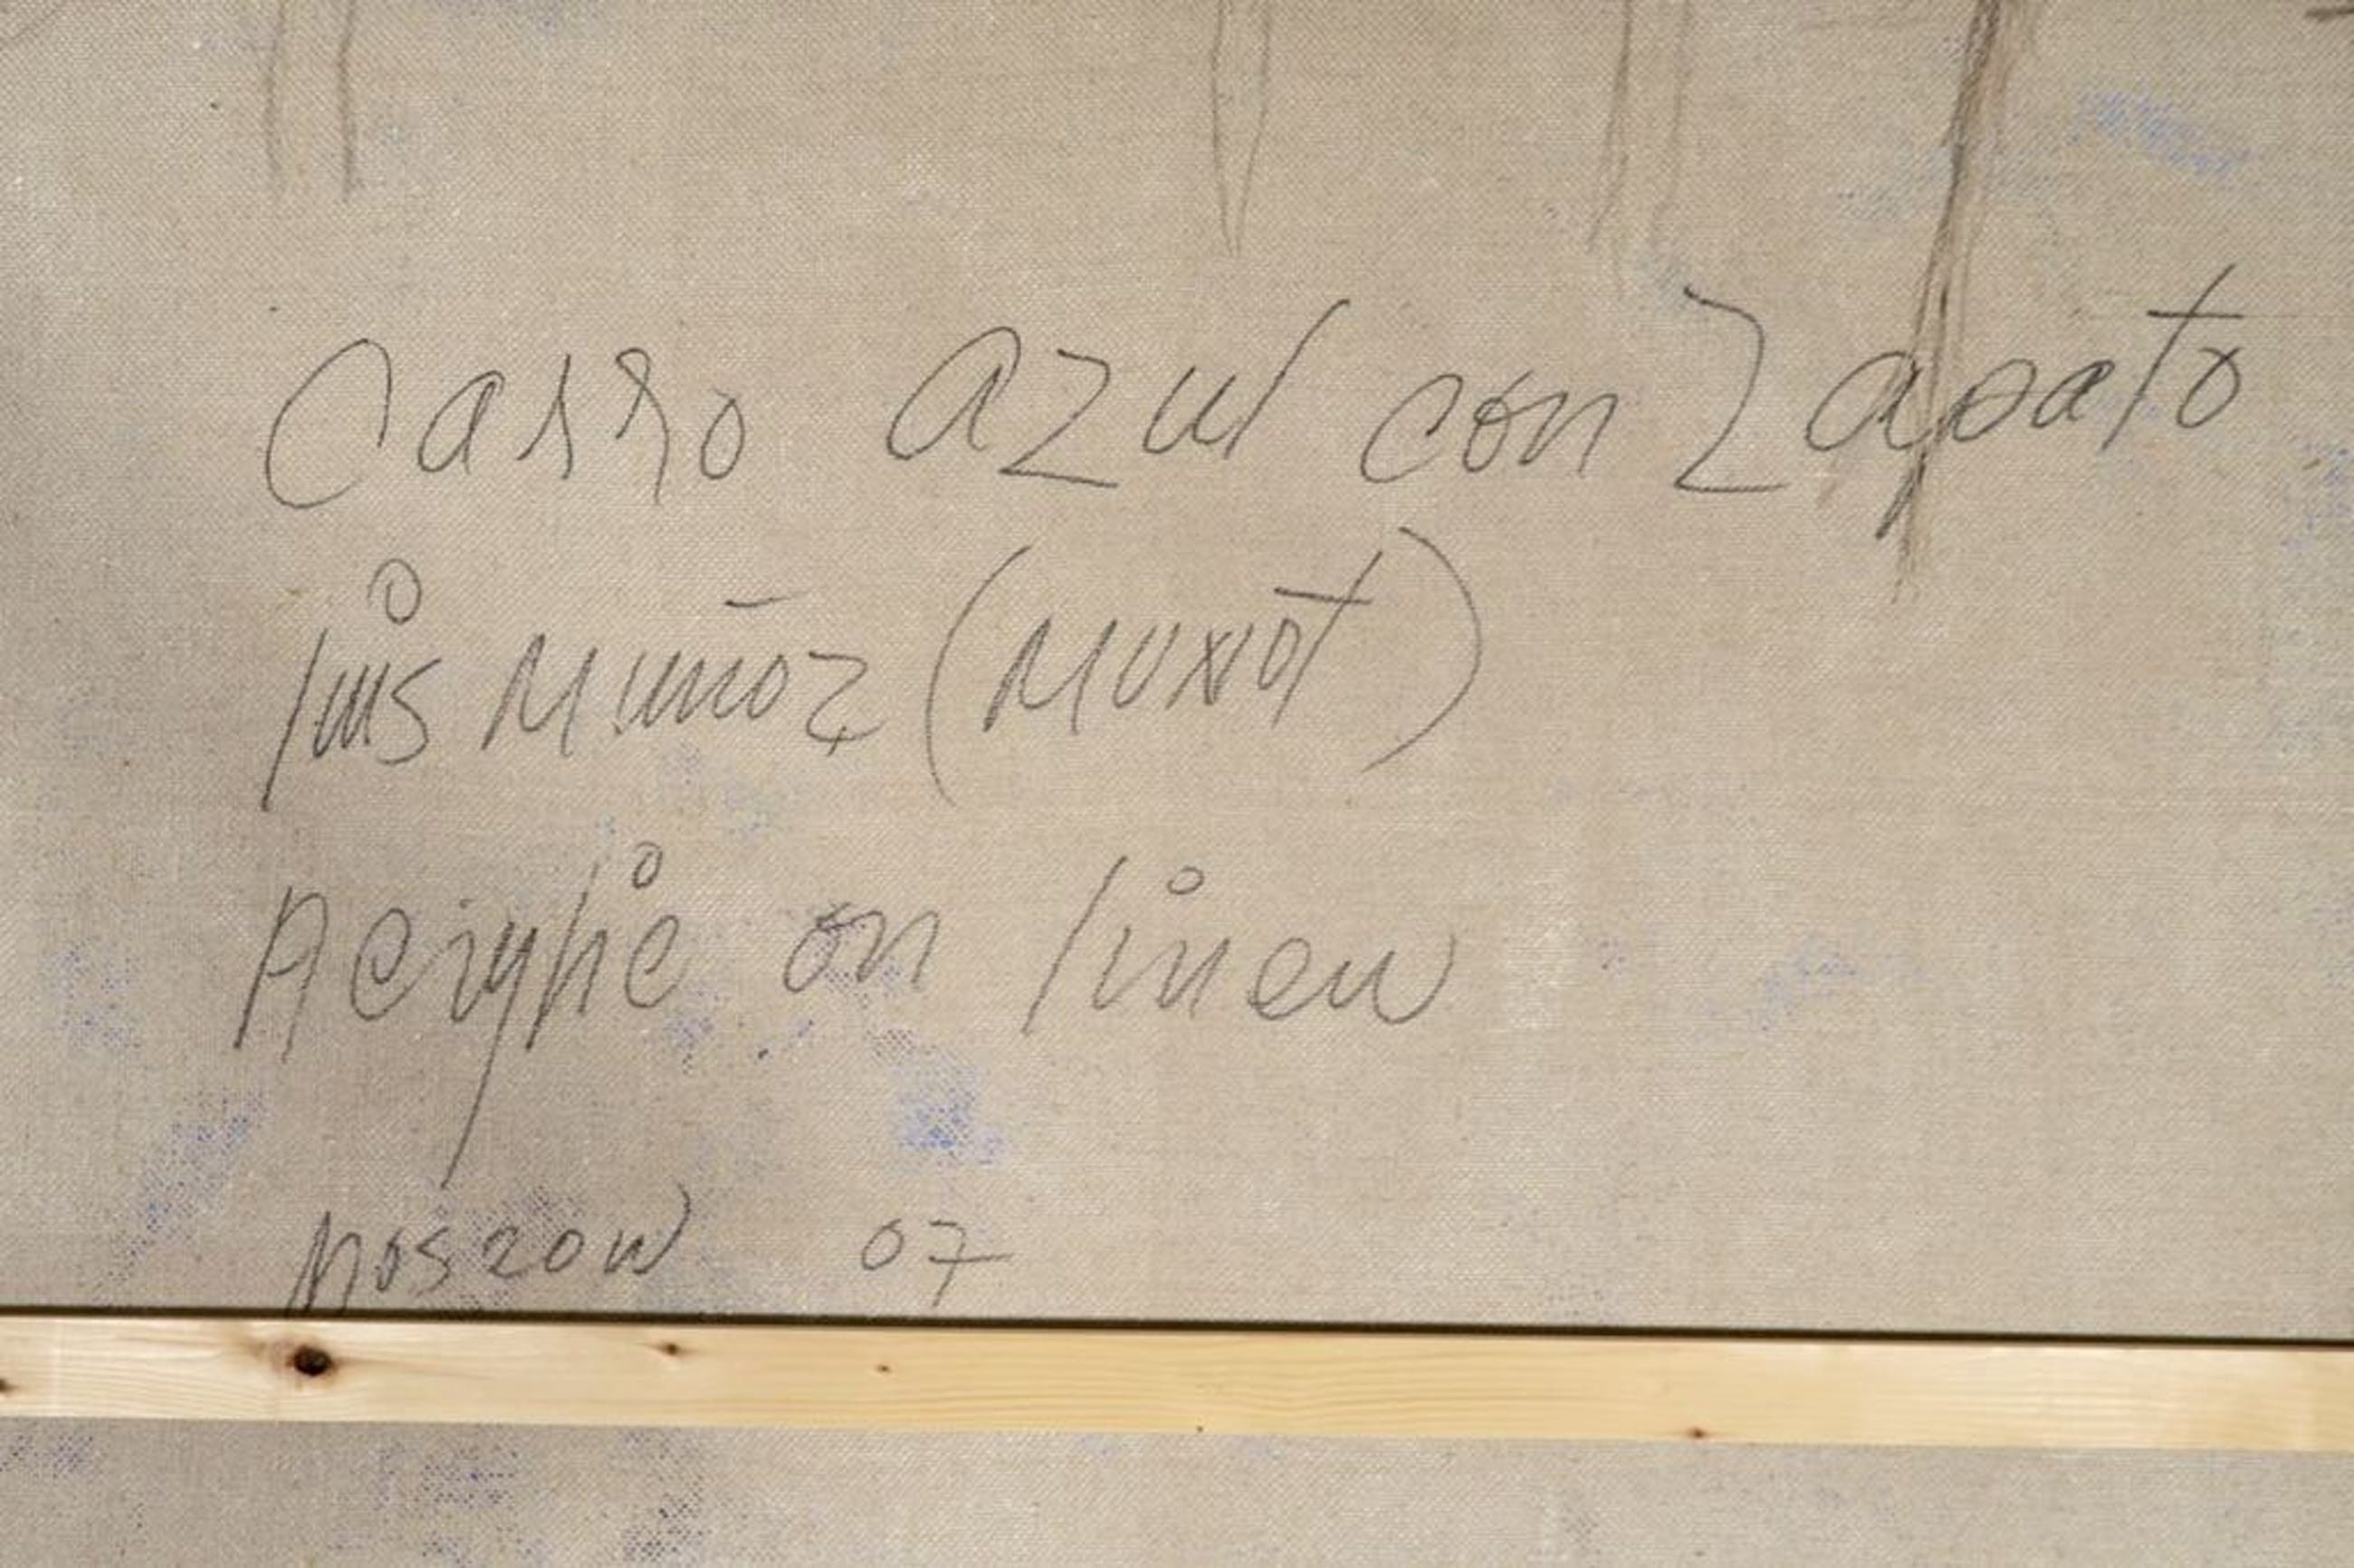 Carro azul con Zapato
luis Muñoz (MUXIOT)
Acrylic on linen
Moscow 07